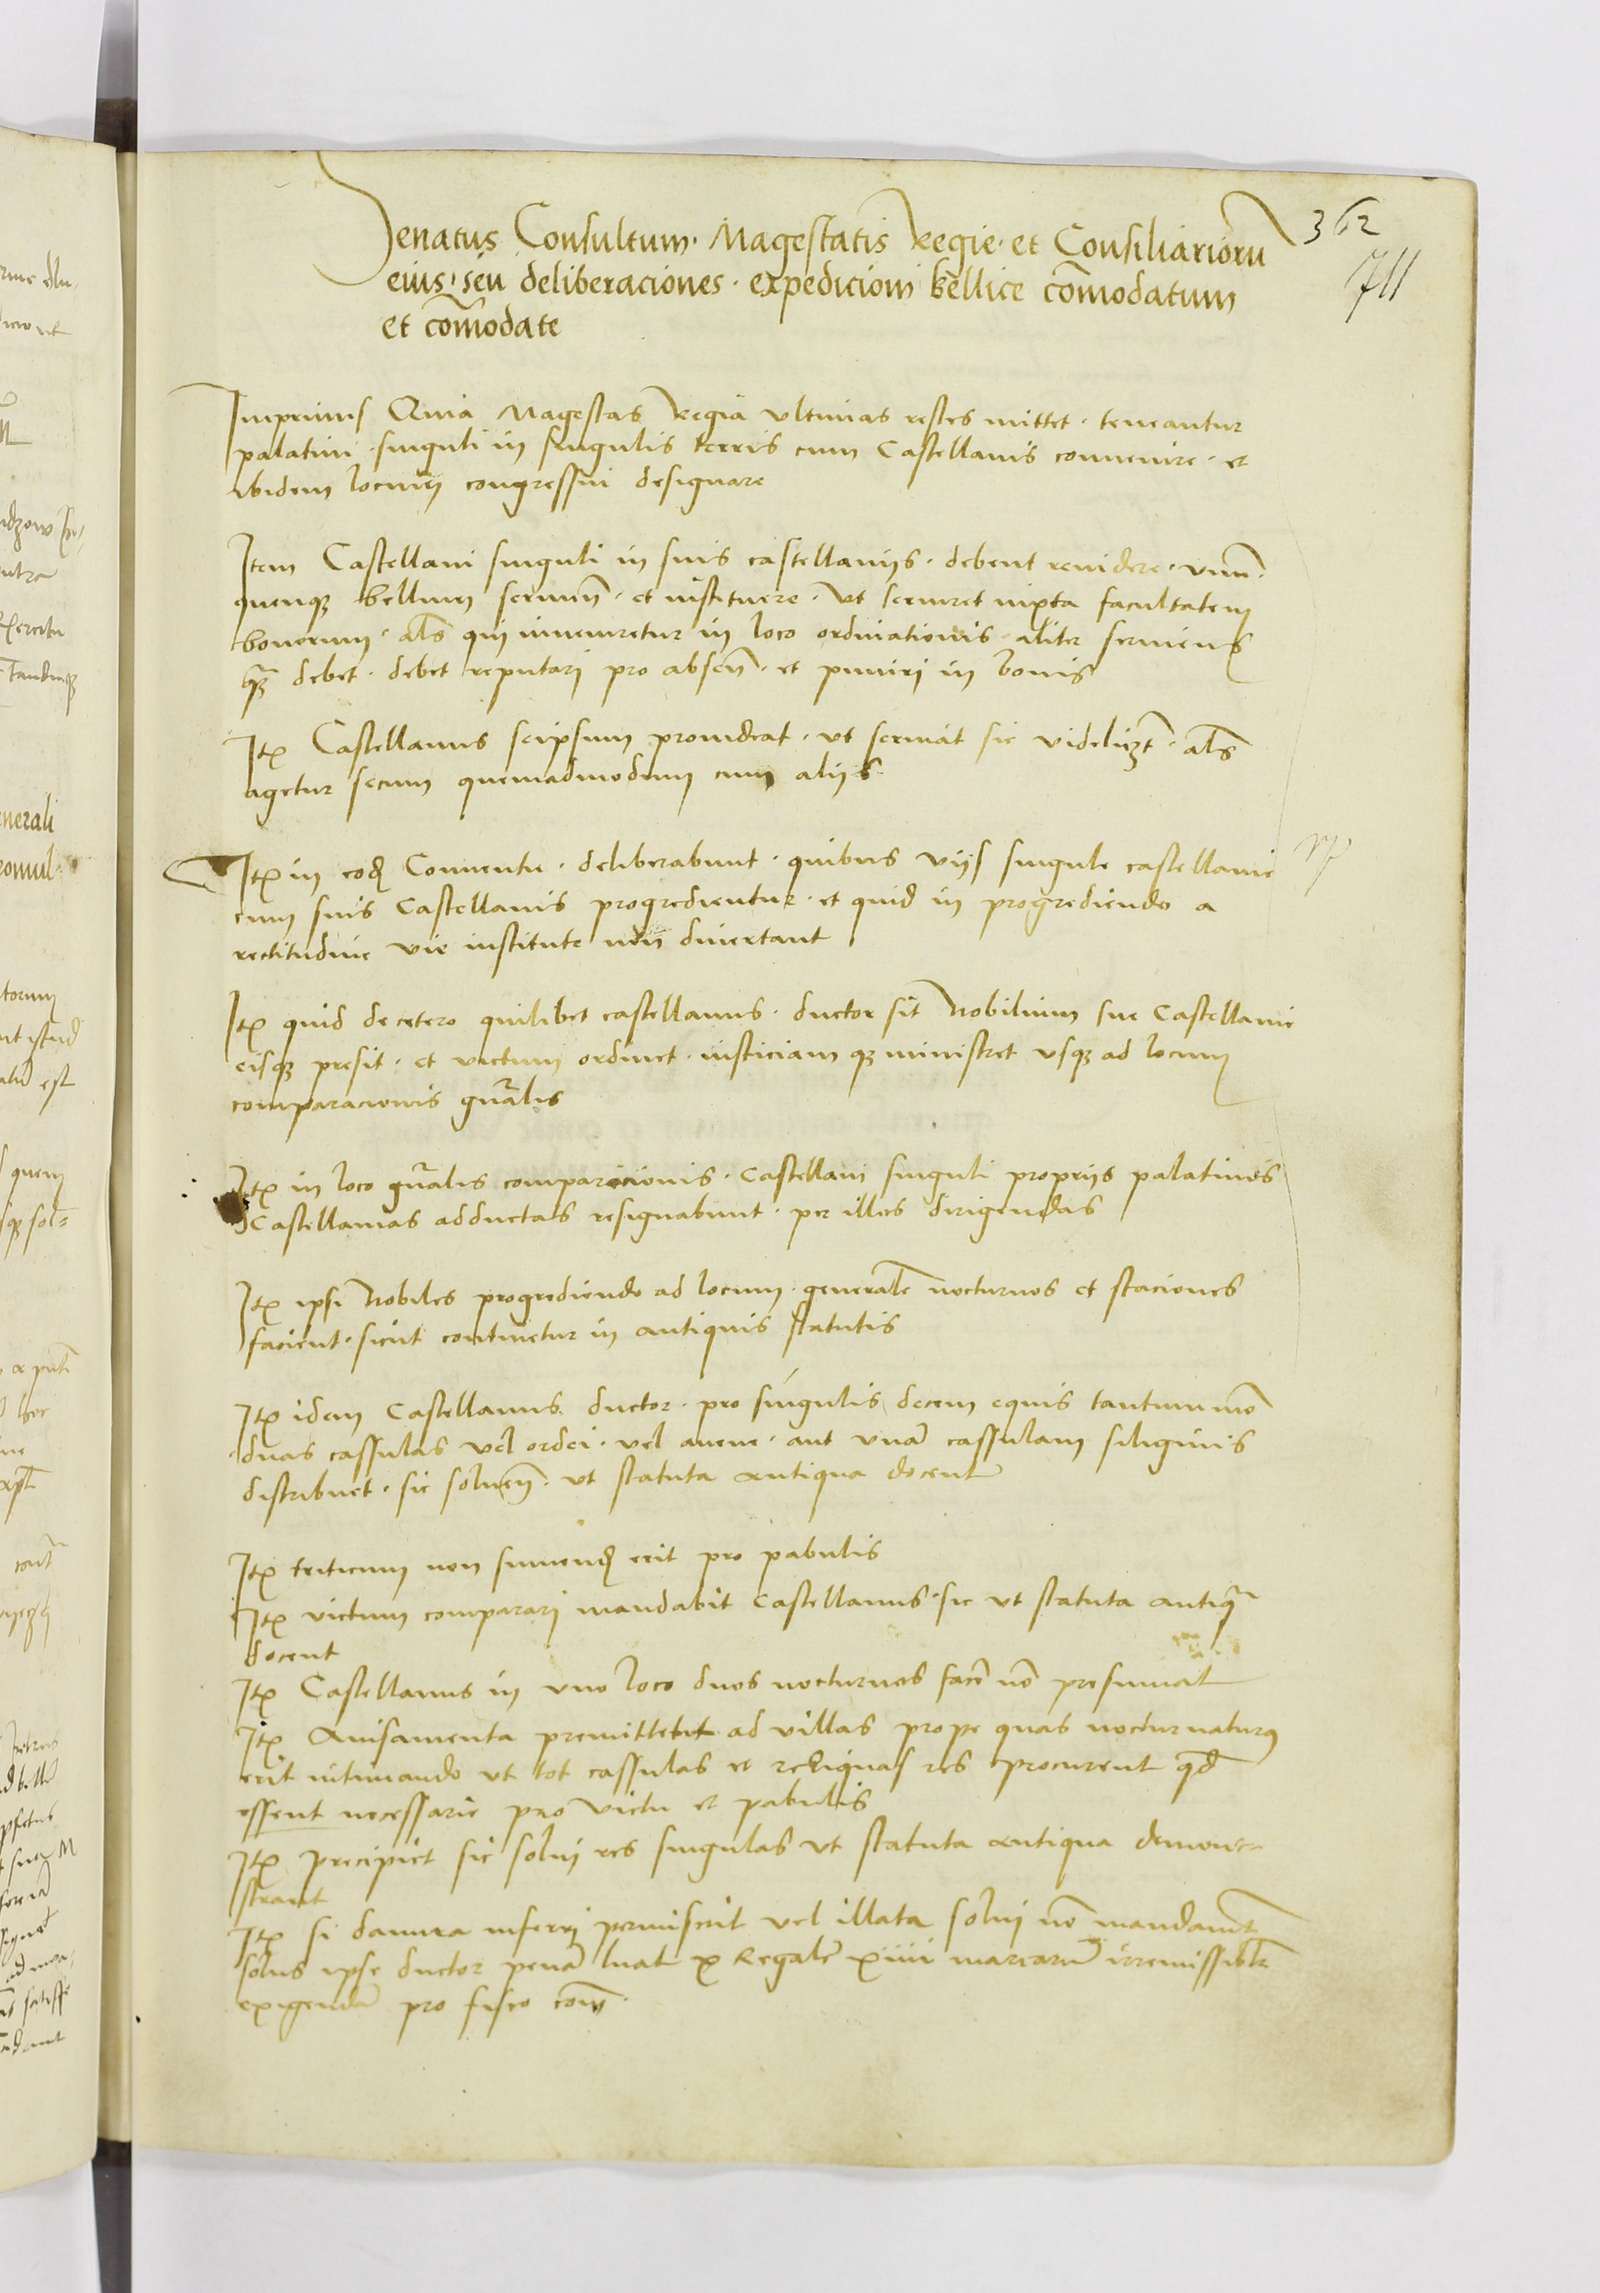 362
711
Senatus Consultum · Magestatis Regie · et Consiliariorū
eius · seu deliberaciones · expedicioni bellice cōmodatum
et cōmodate
Imprimis Quia Magestas Regia ultimas restes mittet · teneantur
palatini · singuli in singulis terris cum Castellanis convenire · et
ibidem locum congressui designare
Item Castellani singuli in suis castellaniis · debent revidere · unū·
quenq bellum servien̄ · et instituere · Ut serviret iuxta facultatem
bonorum · al̄s qui inveniretur in loco ordinationis aliter serviens
q̄ debet · debet reputari pro absen̄ · et puniri in bonis
Itē Castellanus seipsum provideat · ut serviat sic videlizt · al̄s
agetur secum quemadmodum cum aliis
Itē in eod Conventu · deliberabunt · quibus viis singule castellanie
cum suis Castellanis progredientur · et quid in progrediendo a
rectitudine vie institute non divertant
Itē quid de cetero quilibet castellanus · ductor sit Nobilium sue Castellanie
eisq presit · et victum ordinet · iusticiam q ministret usq ad locum
comparacionis gn̄alis
Itē in loco gn̄alis comparicionis · Castellani singuli propriis palatinis
Castellanias adductas resignabunt · per illos dirigendas
Itē ipsi Nobiles progrediendo ad locum · generalē nocturnos et staciones
facient · sicut continetur in antiquis statutis
Itē idem Castellanus ductor · pro singulis decem equis tantummō
duas cassulas vel ordei · vel avene · aut unā cassulam siliginis
distribuet · sic solven̄ · ut statuta antiqua docent
Itē triticum non sumend erit pro pabulis
Itē victum comparari mandabit Castellanus · sic ut statuta antiq̄
docent
Itē Castellanus in uno loco duos nocturnos facē nō presumat
Itē Avisamenta premittetut ad villas prope quas nocturnatur9
erit intimando ut tot cassulas et reliquas res procurent qd
essent necessarie pro victu et pabulis
Itē precipiet sic solvi res singulas ut statuta antiqua demon-
strant
Itē si damna inferri permiserit vel illata solvi nō mandavit
solus ipse ductor penā luat Regalē xiiii marcarū irremissiblr
exigendā pro fisco